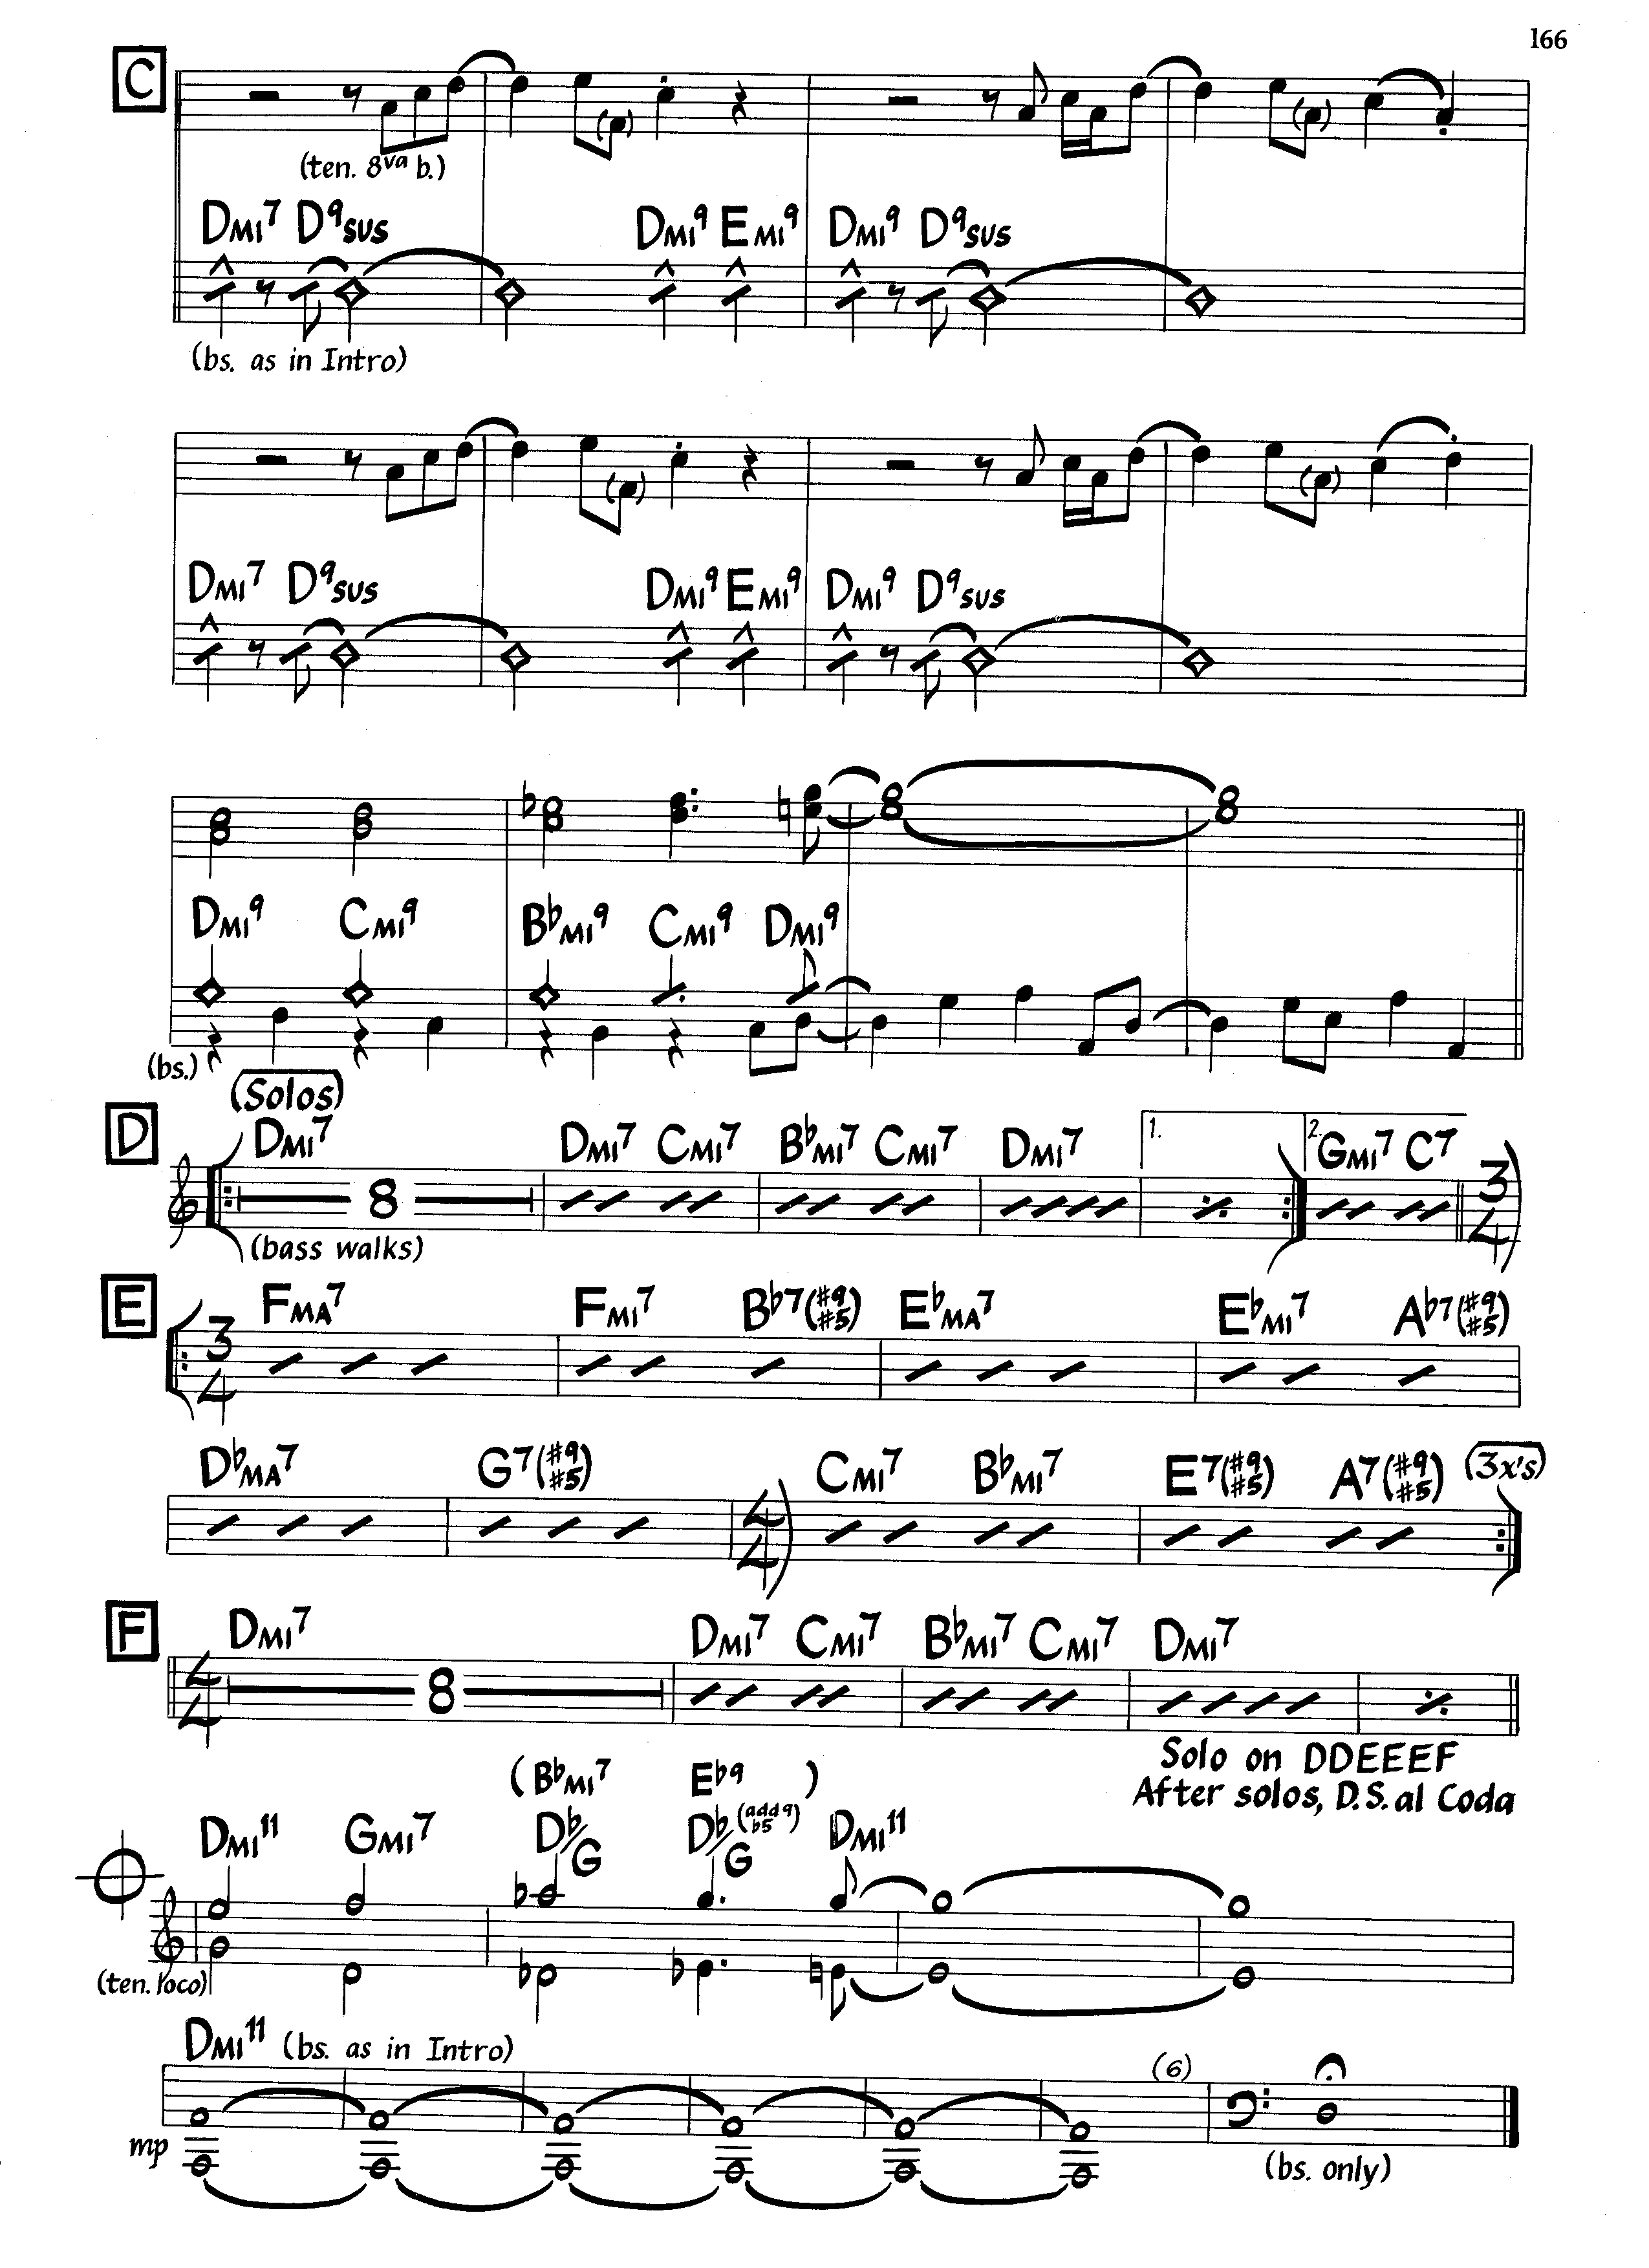 166
C
(ten. 8va b.)
DMI7 D9SUS DMI9 EMI9 DMI9 D9SUS
(bs. as in Intro)
DMI7 D9SUS DMI9 EMI9 DMI9 D9SUS
DMI9 CMI9 B♭MI9 CMI9 DMI9
(bs.)
(Solos)
D DMI7 DMI7 CMI7 B♭MI7 CMI7 DMI7 1. 2. GMI7 C7
8 3/4
(bass walks)
E FMA7 FMI7 B♭7(#9 #5) E♭MA7 E♭MI7 A♭7(#9 #5)
3/4
D♭MA7 G7(#9 #5) CMI7 B♭MI7 E7(#9 #5) A7(#9 #5) (3x's)
4/4
F DMI7 DMI7 CMI7 B♭MI7 CMI7 DMI7
4/4 8
Solo on DDEEEF
After solos, D.S. al Coda
(B♭MI7 E♭9)
DMI11 GMI7 D♭/G D♭(add9 ♭5)/G DMI11
(ten. loco)
DMI11 (bs. as in Intro)
(6)
mp
(bs. only)